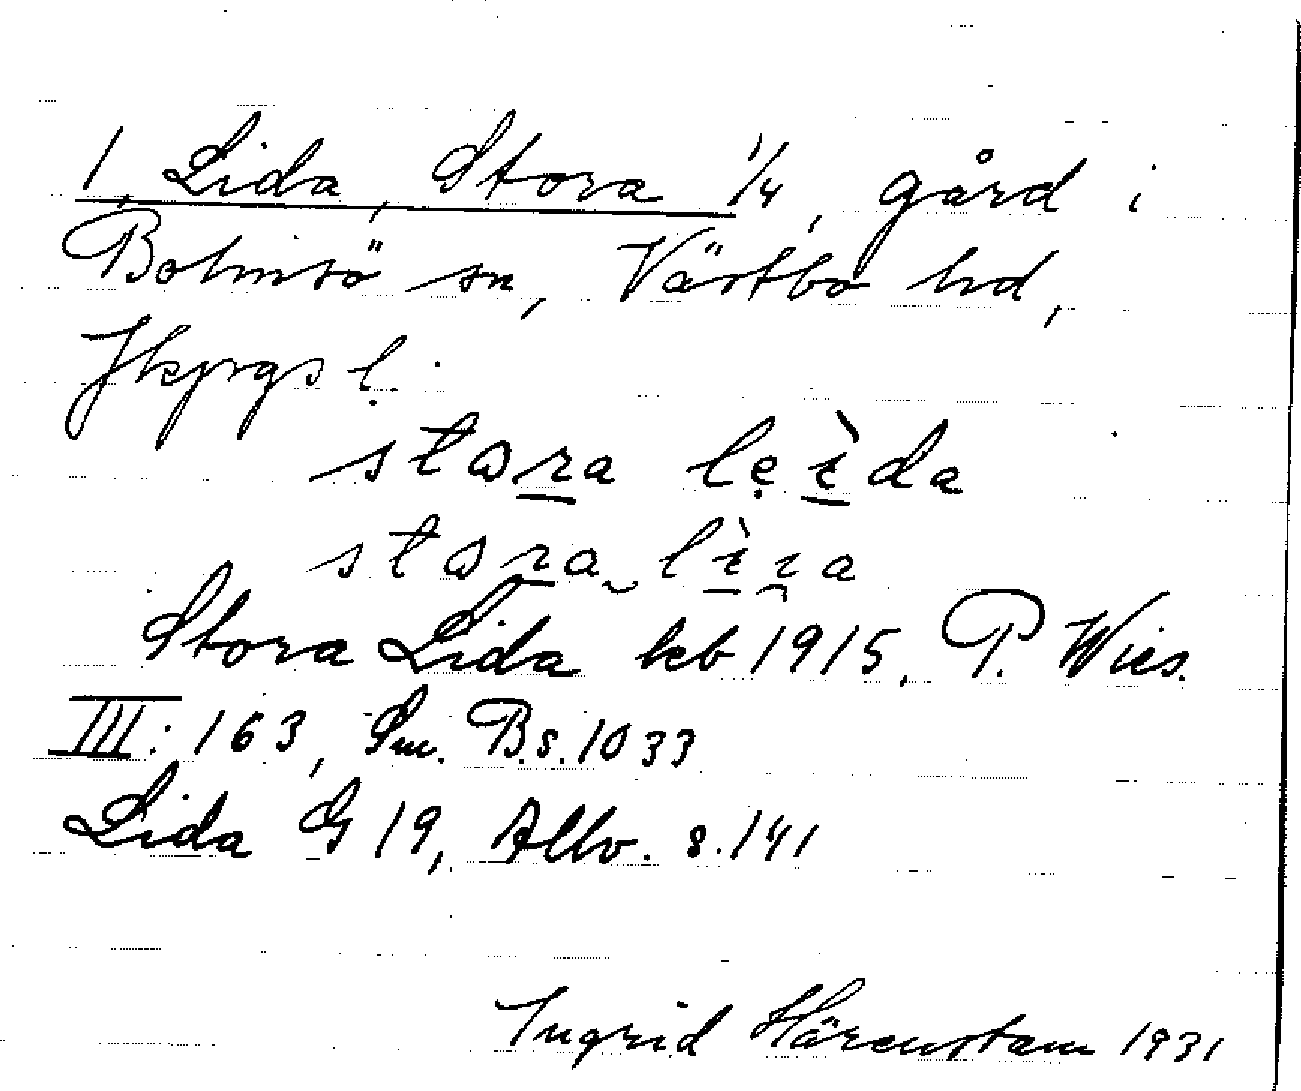 1, Lida, Stora 1/4, gård i
Bolmsö sn, Västbo hd,
Jkpgs l.
stora leìda
stora lìɾa
Stora Lida kb 1915, P. Wies.
III: 163, Sm. B. s. 1033
Lida G 19, Allv. s. 141
Ingrid Härenstam 1931